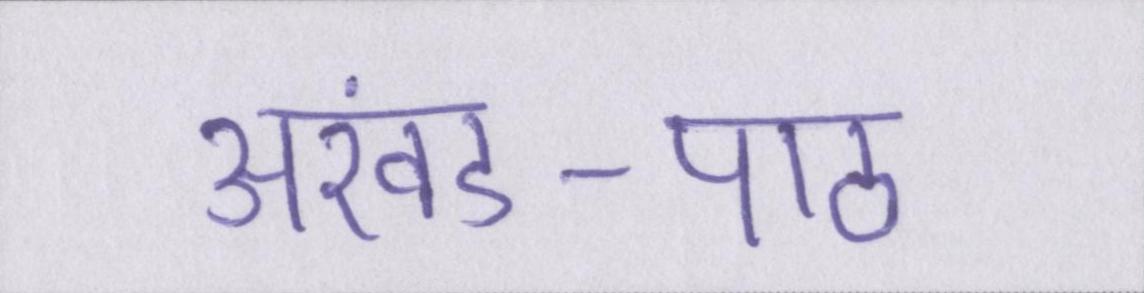 अखंड-पाठ